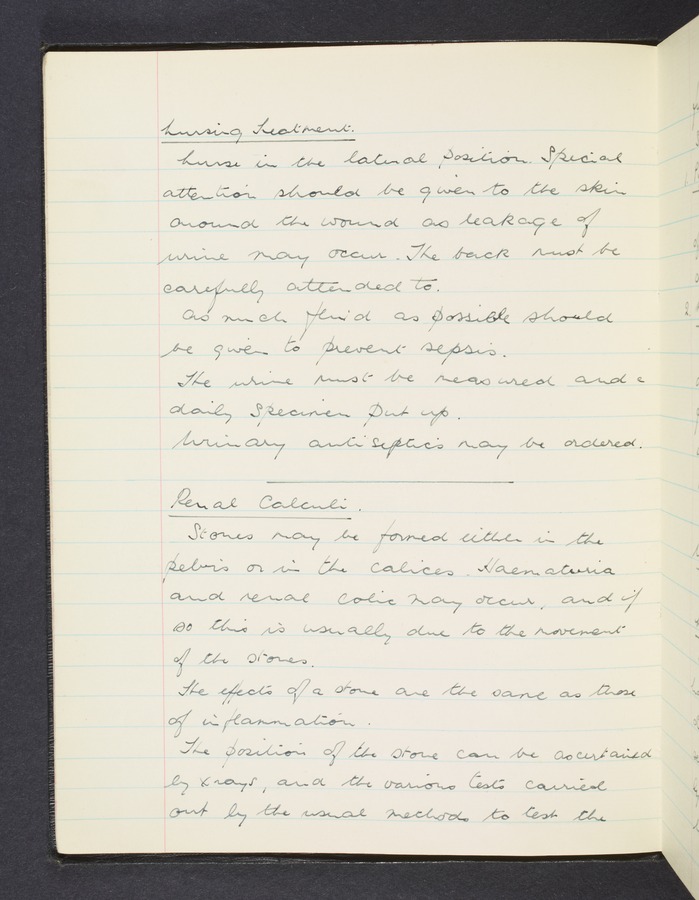 Nursing Treatment.
Nurse in the lateral position. Special
attention should be given to the skin
around the wound as leakage of
urine may occur. The back must be
carefully attended to.
As much fluid as possible should
be given to prevent sepsis.
The urine must be measured and a
daily specimen put up.
Urinary antiseptics may be ordered.
Renal Calculi.
Stones may be formed either in the
pelvis or in the calices. Haematuria
and renal colic may occur, and if
so this is usually due to the movement
of the stones.
The effects of a stone are the same as those
of inflammation.
The position of the stone can be ascertained
by xrays, and the various tests carried
out by the usual methods to test the